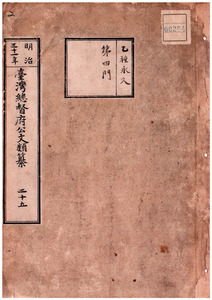 乙種永久
第四門
明治
三十一年
臺灣總督府公文類纂
二十五